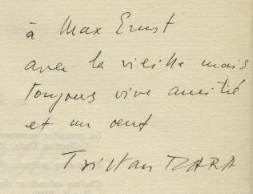 à Max Ernst
avec la vieille mais
toujours vive amitié
et un oeuf
Tristan TZARA